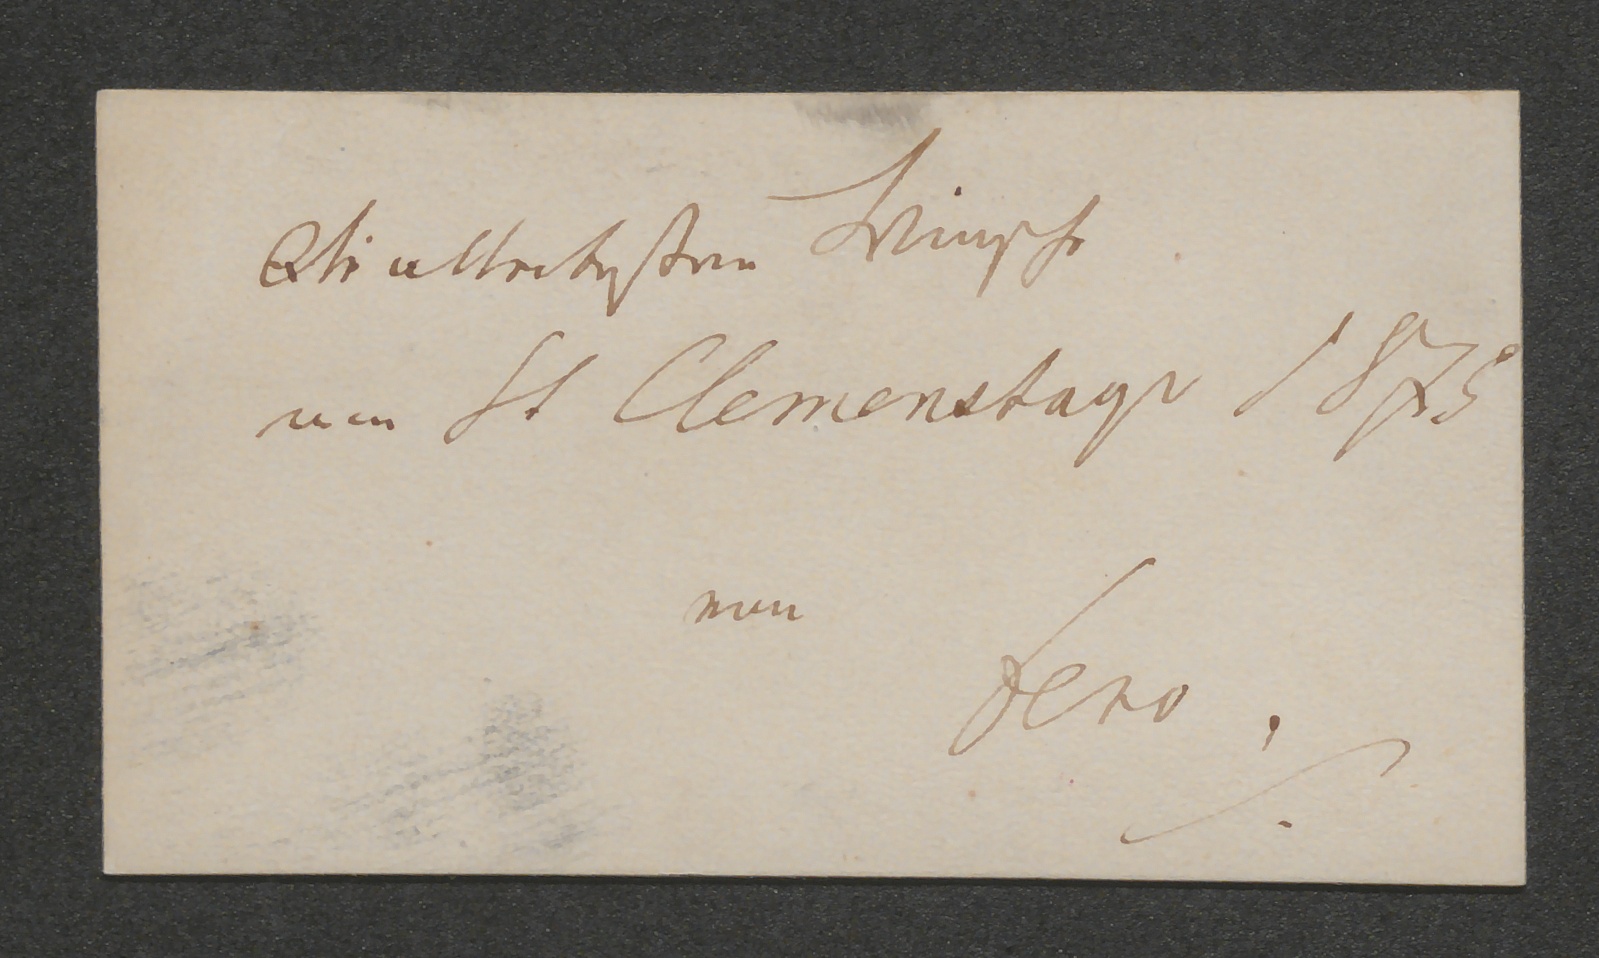 Die allerbesten Wünsche
am St Clemenstage 1875
von
Fero.